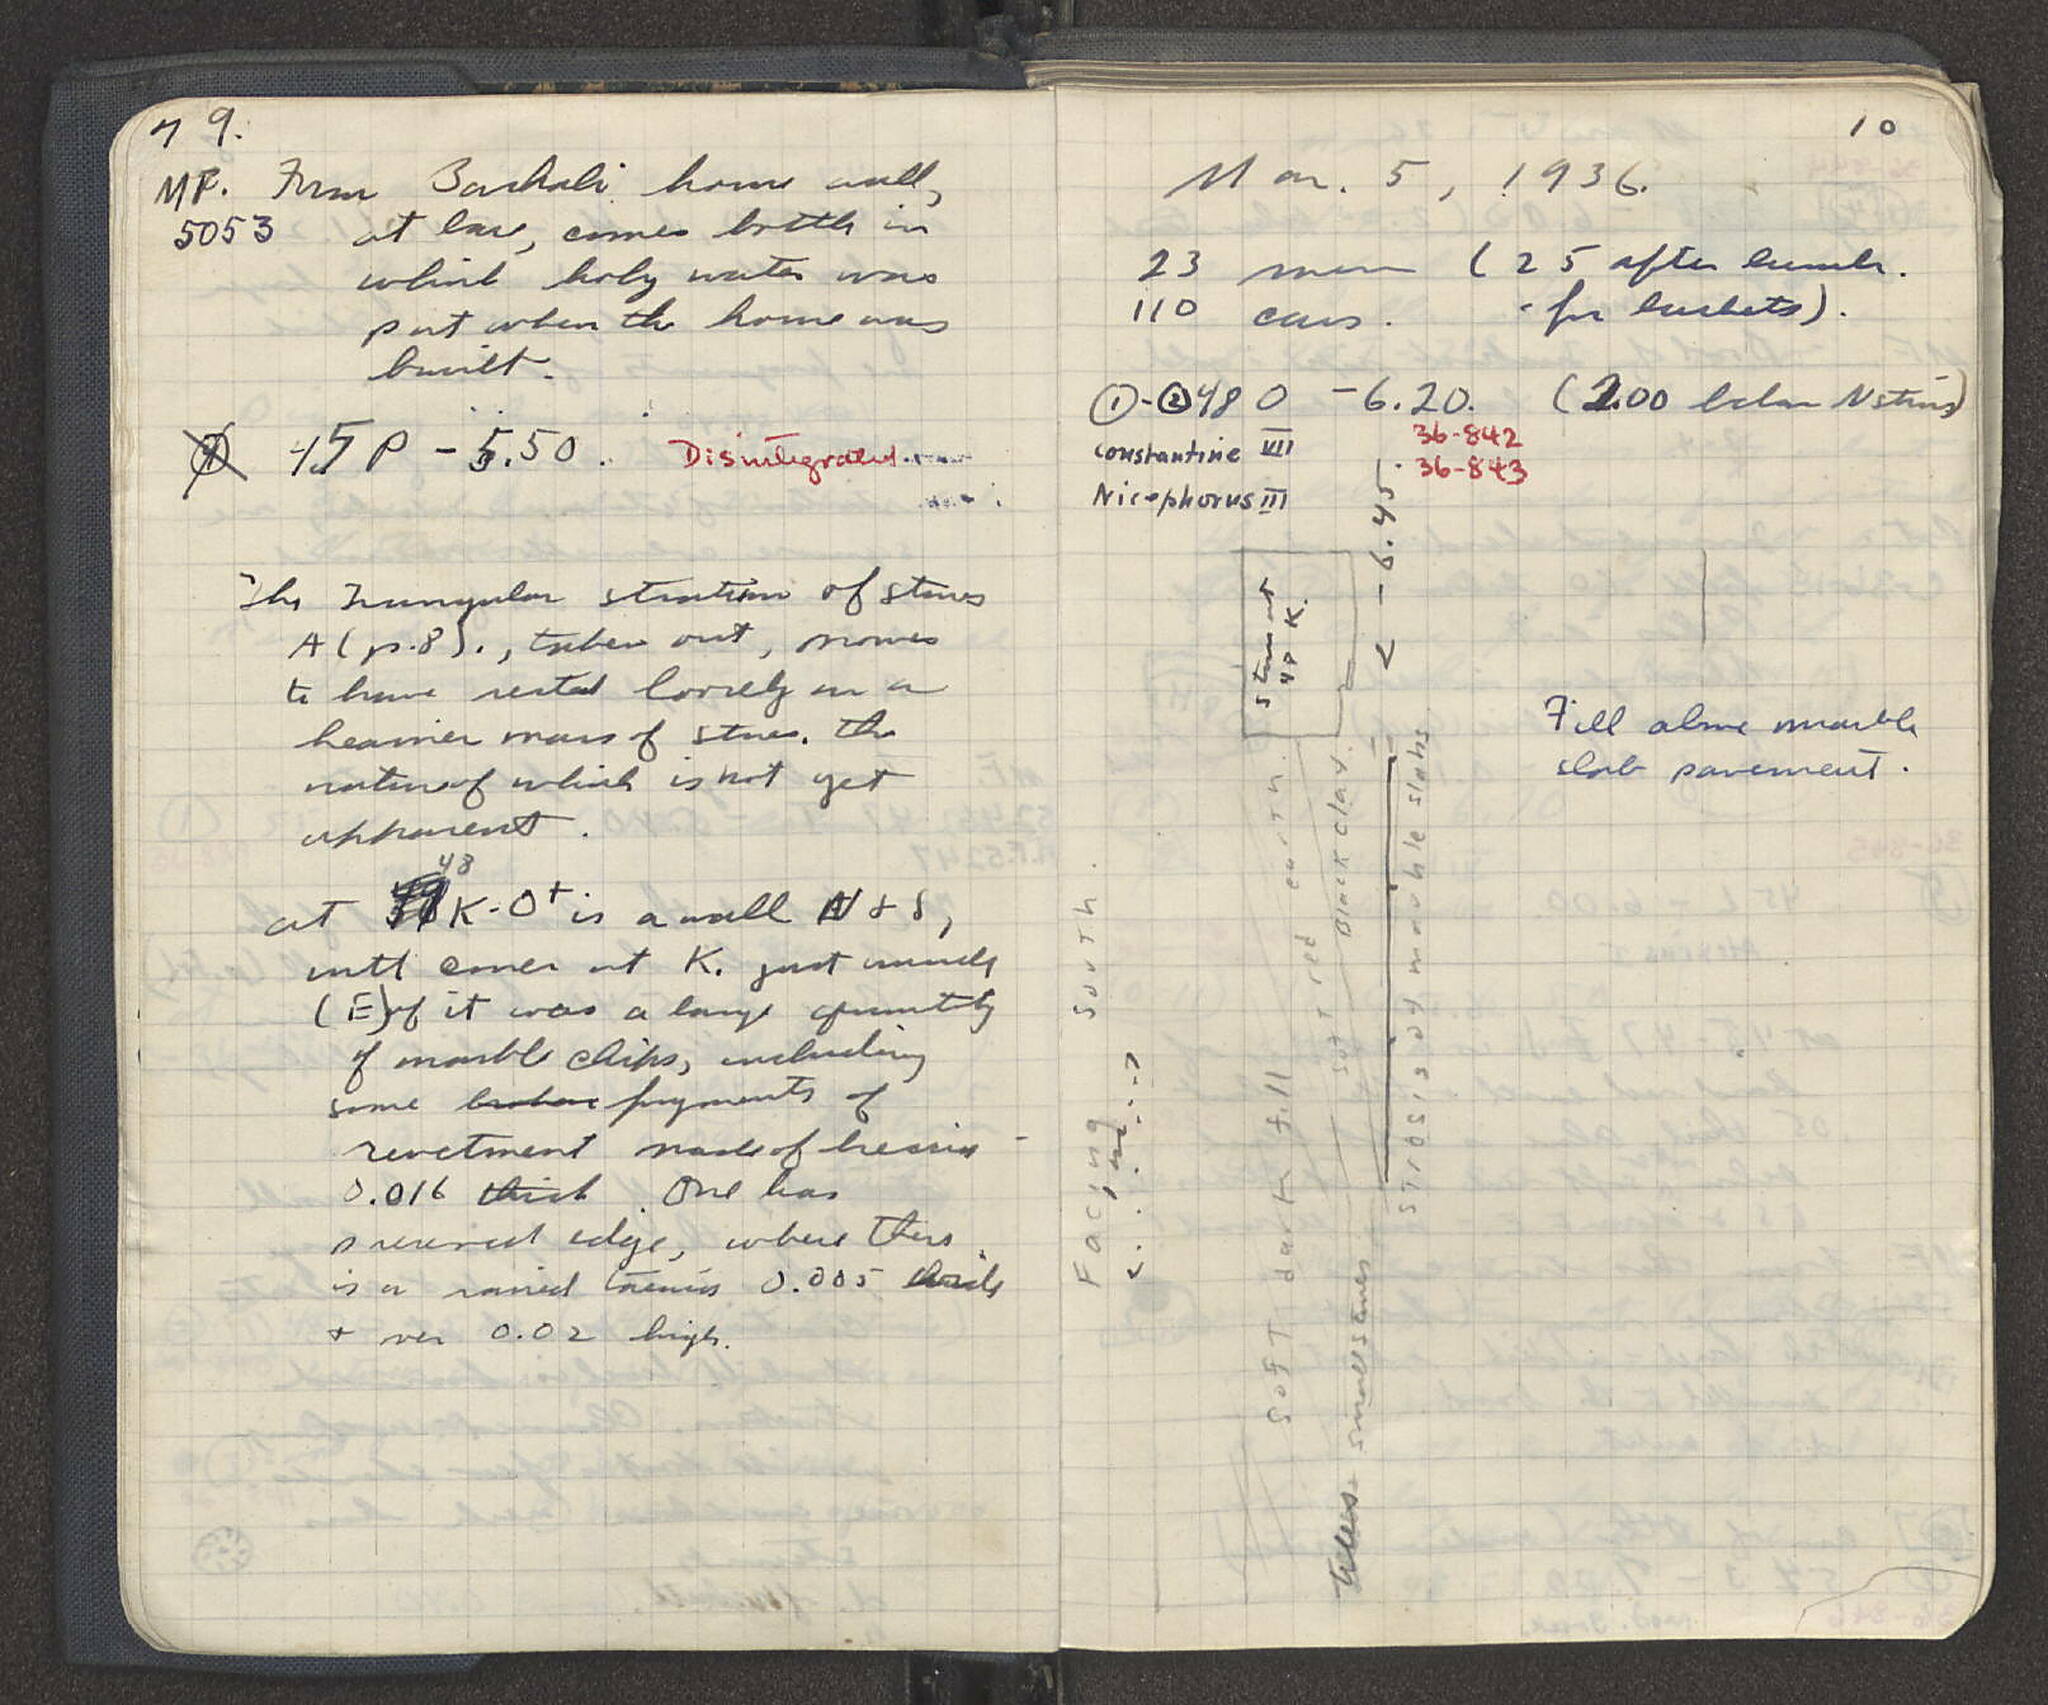 79.
MF. From Bashali house wall,
5053 at base, comes bottle in
which holy water was
put when the house was
built.
① 45 P - 5.50. Disintegrated.
The Triangular structure of stones
A (p. 8)., taken out, proves
to have rested loosely on a
heavier mass of stones. The
nature of which is not yet
apparent.
48
at K-O+ is a wall N & S,
with corner at K. just inside
(E) of it was a large quantity
of marble chips, including
some broken fragments of
revetment made of breccia -
0.016 thick. One has
preserved edge, where there
is a raised taenia 0.005 thick
+ 0.02 high.
10
Mar. 5, 1936.
23 men (25 after lunch.
110 cars. - for baskets).
①-② 48 O -6.20. (2.00 below
36-842
Constantine VII 36-843
Nicephorus III
← -6.45.
Stones at
49 K.
Fill above marble
slab pavement.
Facing South.
Soft dark fill
Soft red earth.
Black clay.
STROSIS of marble slabs
Tiles small stones